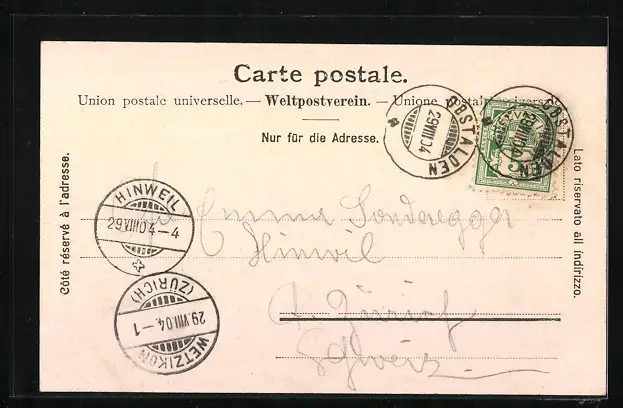 Carte postale.
Union postale universelle. — Weltpostverein. — Unione postale universale
Nur für die Adresse.
Côté réservé à l'adresse.
Lato riservato all indirizzo.
OBSTALDEN
29 VIII 04
OBSTALDEN
29 VIII 04
5
HINWEIL
29 VIII 04 – 4
WETZIKON
(ZÜRICH)
29. VIII. 04. – 1
Emma Sonderegger
Hinwil
Zürich
Schweiz